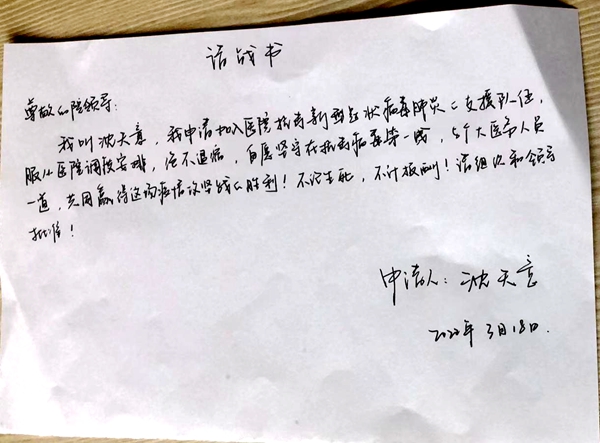 请战书
尊敬的院领导：
我叫沈天意，我申请加入医院抗击新型冠状病毒肺炎的支援队伍，
服从医院调段安排，决不退缩，自愿坚守在抗击病毒第一线，与广大医务人员
一道，共同赢得这场疫情攻坚战的胜利！不论生死，不计报酬！请组织和领导
批准！
申请人：沈天意
2022年3月18日.